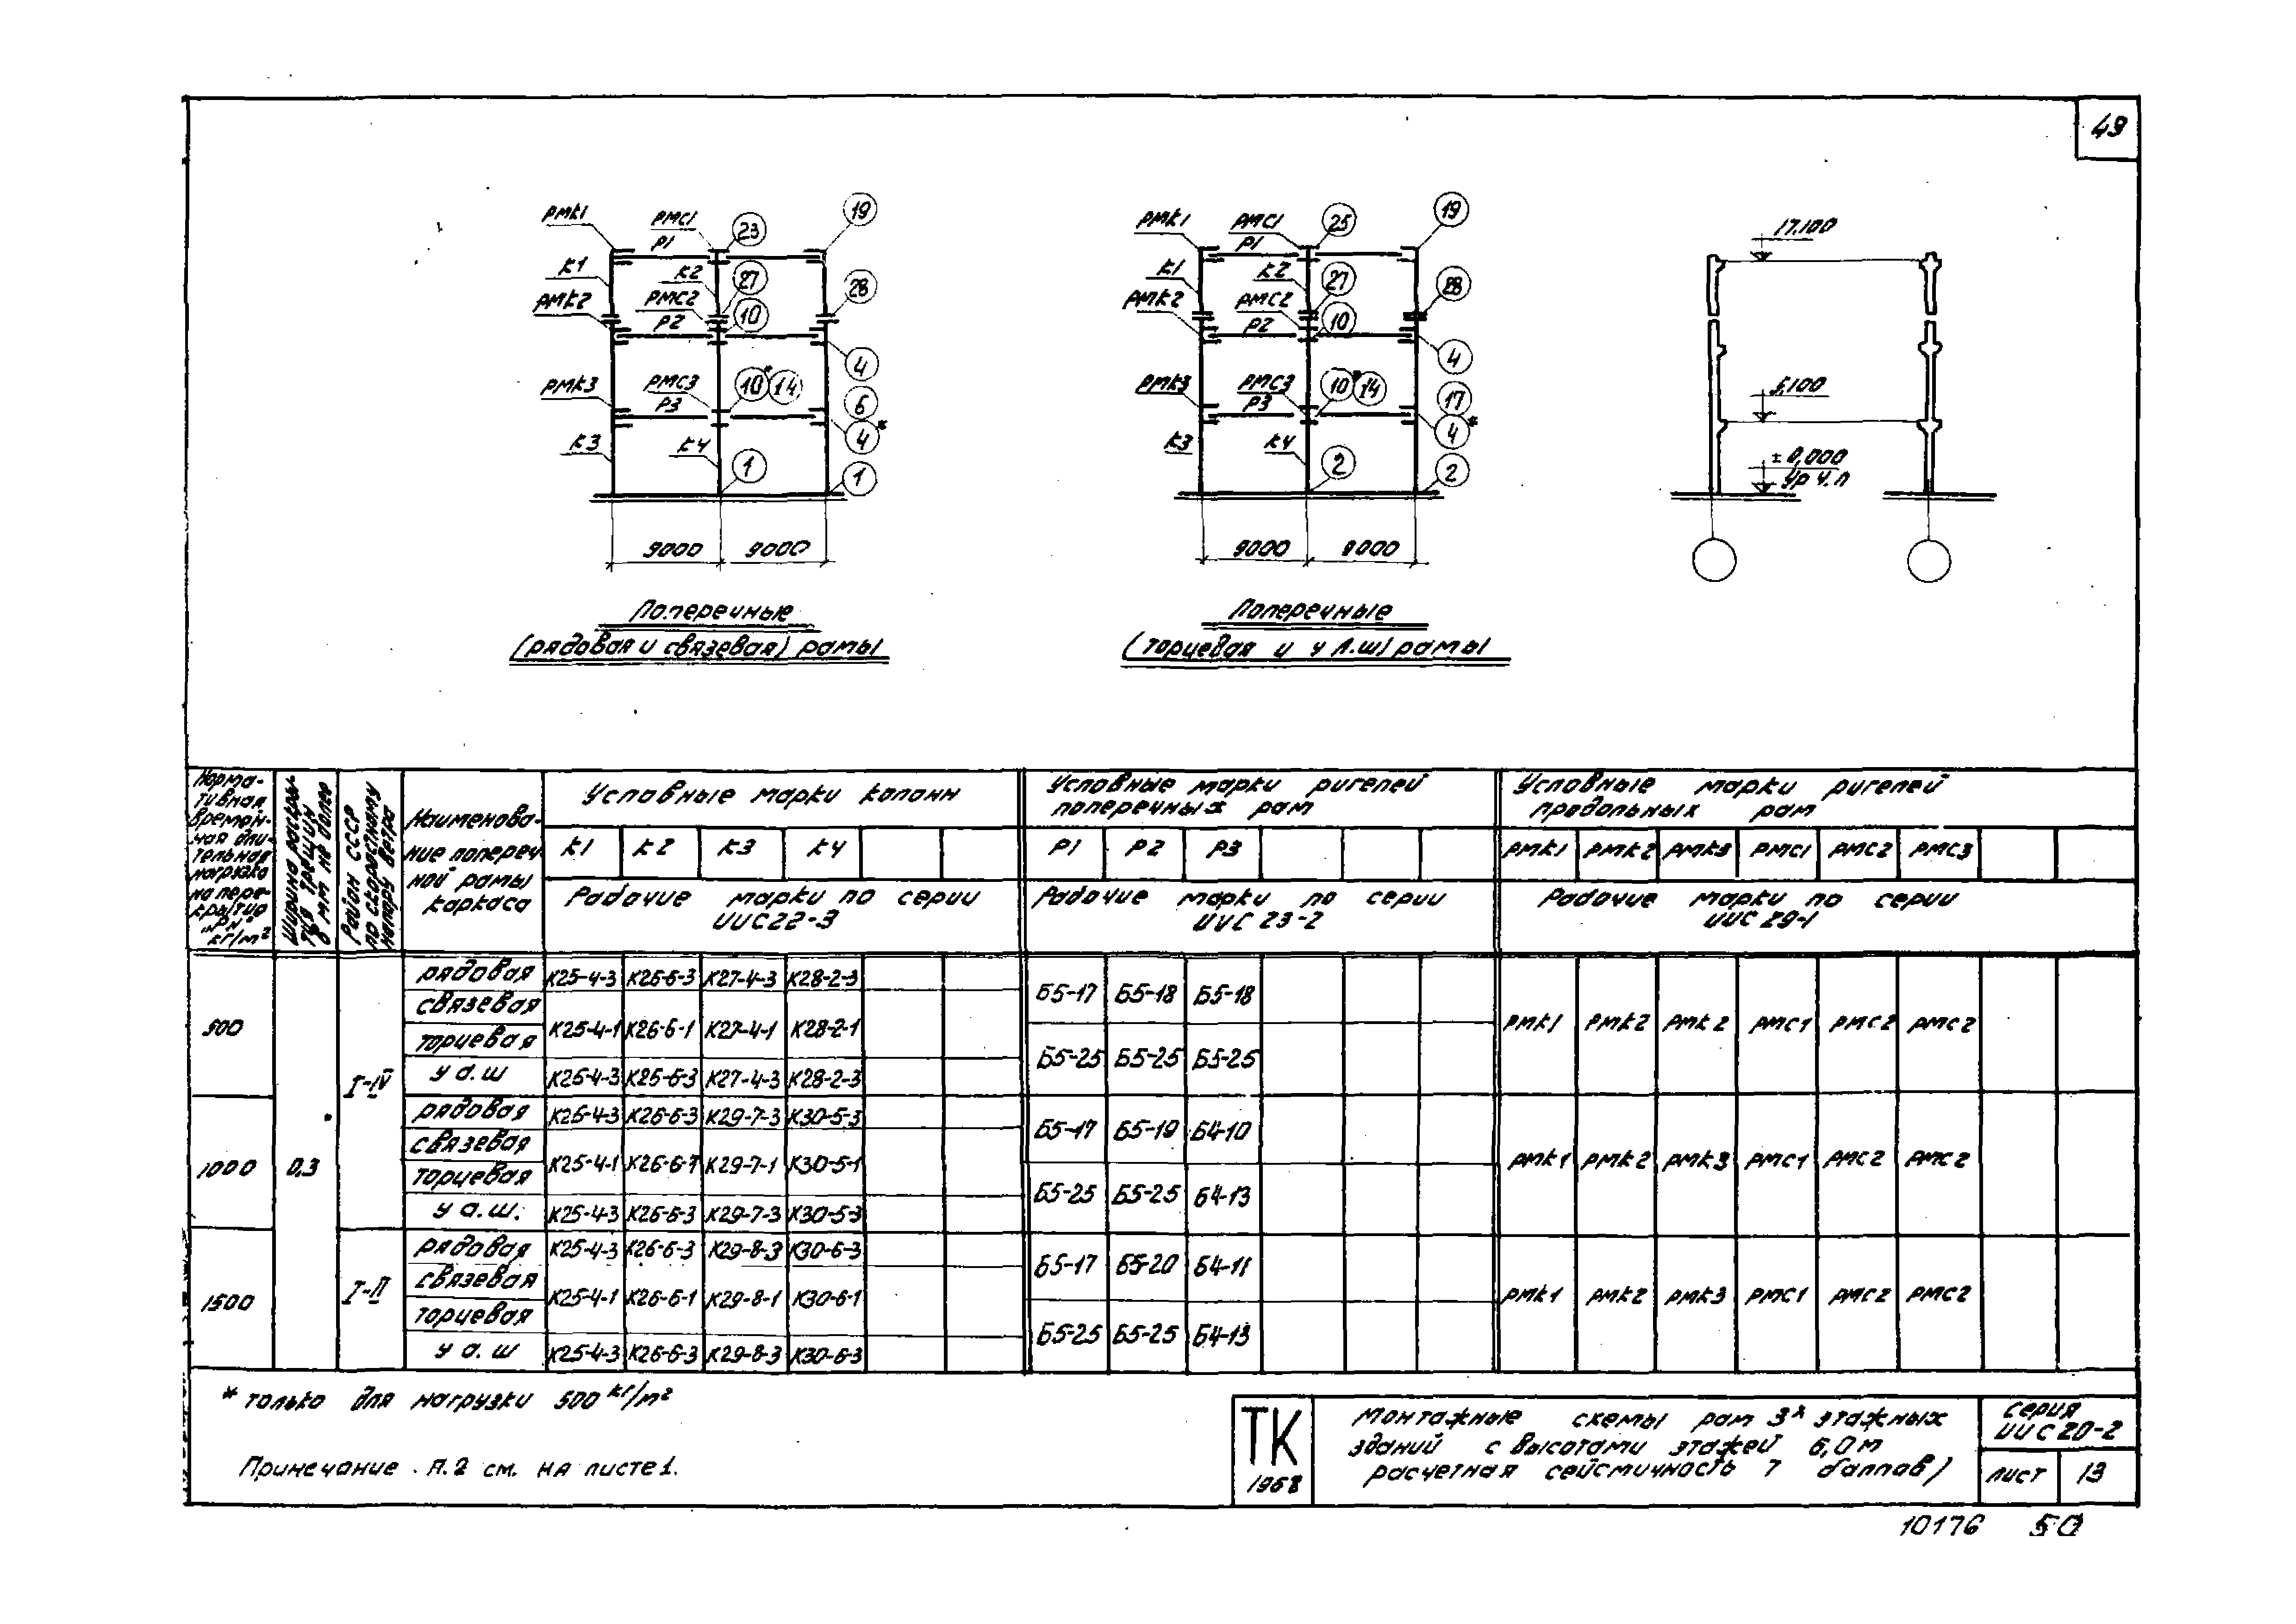 49
РМК1
РМС1
23
19
Р1
К1
К2
27
28
РМК2
РМС2
10
Р2
4
РМК3
РМС3
10*
14
6
Р3
4*
К3
К4
1
1
9000
9000
Поперечные
(рядовая и связевая) рамы
РМК1
РМС1
25
19
Р1
К1
К2
27
28
РМК2
РМС2
10
Р2
4
РМК3
РМС3
10*
14
17
Р3
4*
К3
К4
2
2
9000
9000
Поперечные
(торцевая и у А.Ш) рамы
17.100
5,100
± 0,000
Ур ч.п
Норма-
тивная
времен-
ная дли-
тельная
нагрузка
на пере-
крытия
"Рн"
кг/м²
Ширина раскры-
тия трещин
в мм не более
Район СССР
по скоростному
напору ветра
Наименова-
ние попереч
ной рамы
каркаса
Условные марки колонн
К1 К2 К3 К4
Рабочие марки по серии
ИИС22-3
Условные марки ригелей
поперечных рам
Р1 Р2 Р3
Рабочие марки по серии
ИИС 23-2
Условные марки ригелей
продольных рам
РМК1 РМК2 РМК3 РМС1 РМС2 РМС3
Рабочие марки по серии
ИИС 29-1
500
0,3
I-IV
рядовая К25-4-3 К26-6-3 К27-4-3 К28-2-3
связевая
торцевая
К25-4-1 К26-6-1 К27-4-1 К28-2-1
у а.ш К25-4-3 К26-6-3 К27-4-3 К28-2-3
Б5-17 Б5-18 Б5-18
Б5-25 Б5-25 Б5-25
РМК1 РМК2 РМК2 РМС1 РМС2 РМС2
1000
рядовая К25-4-3 К26-6-3 К29-7-3 К30-5-3
связевая
торцевая
К25-4-1 К26-6-1 К29-7-1 К30-5-1
у а.ш. К25-4-3 К26-6-3 К29-7-3 К30-5-3
Б5-17 Б5-19 Б4-10
Б5-25 Б5-25 Б4-13
РМК1 РМК2 РМК3 РМС1 РМС2 РМС2
1500
I-II
рядовая К25-4-3 К26-6-3 К29-8-3 К30-6-3
связевая
торцевая
К25-4-1 К26-6-1 К29-8-1 К30-6-1
у а.ш К25-4-3 К26-6-3 К29-8-3 К30-6-3
Б5-17 Б5-20 Б4-11
Б5-25 Б5-25 Б4-13
РМК1 РМК2 РМК3 РМС1 РМС2 РМС2
* только для нагрузки 500 кг/м²
Примечание. П.2 см. на листе 1.
ТК
1968
Монтажные схемы рам 3х этажных
зданий с высотами этажей 6,0м
расчетная сейсмичность 7 баллов)
серия
ИИС 20-2
лист 13
10176 50